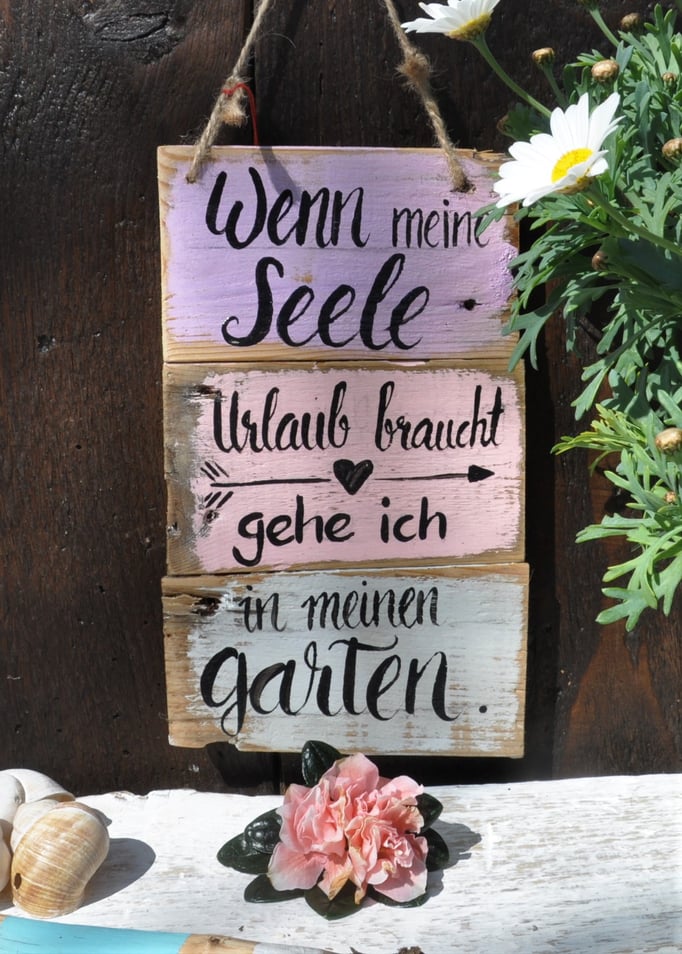 Wenn meine
Seele
Urlaub braucht
gehe ich
in meinen
garten.